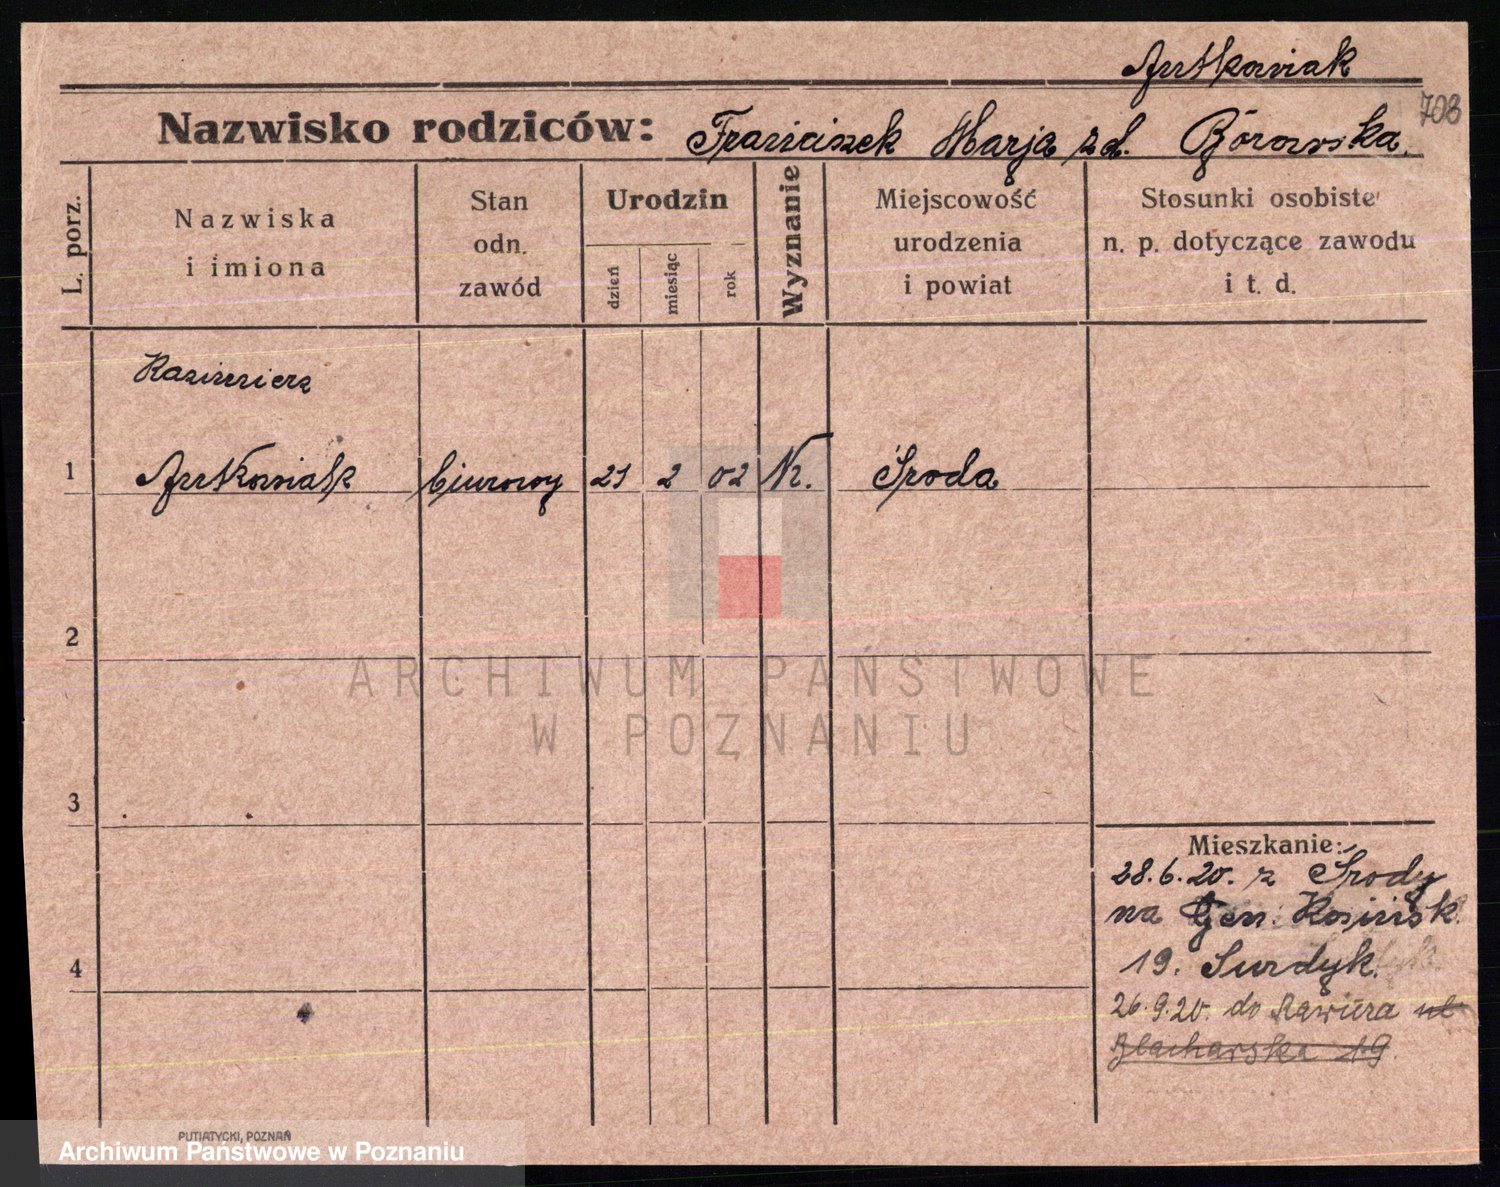 Antkowiak
703
Nazwisko rodziców: Franciszek Marja zd. Górowska.
L. porz.
Nazwiska
i imiona
Stan
odn.
zawód
Urodzin
dzień
miesiąc
rok
Wyznanie
Miejscowość
urodzenia
i powiat
Stosunki osobiste
n. p. dotyczące zawodu
i t. d.
Kazimierz
1 Antkowiak biurowy 21 2 02 Środa
2
3
4
ARCHIWUM PAŃSTWOWE
W POZNANIU
Mieszkanie:
28.6.20. z Środy
na Gen. Kosińsk.
19. Surdyk.
26.9.20. do Rawicza ul.
Blacharska 19.
PUTIATYCKI, POZNAŃ
Archiwum Państwowe w Poznaniu